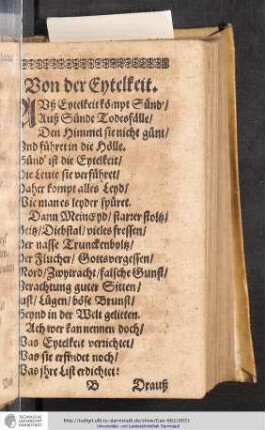 Von der Eytelkeit.
AVß Eytelkeit kömpt Sünd/
Auß Sünde Todesfälle/
Den Himmel sie nicht günt/
Vnd führet in die Hölle.
Sünd' ist die Eytelkeit/
Die Leute sie verführet/
Daher kompt alles Leyd/
Wie man es leyder spüret.
Dann MeinEyd/ starrer stoltz/
Geitz/ Diebstal/ vieles fressen/
Der nasse Trunckenboltz/
Der Flucher/ Gottsvergessen/
Mord/ Zwytracht/ falsche Gunst/
Verachtung guter Sitten/
Lust/ Lügen/ böse Brunst/
Seynd in der Welt gelitten.
Ach wer kan nennen doch/
Was Eytelkeit verrichtet/
Was sie erfindet noch/
Was jhre List erdichtet:
B Drauß